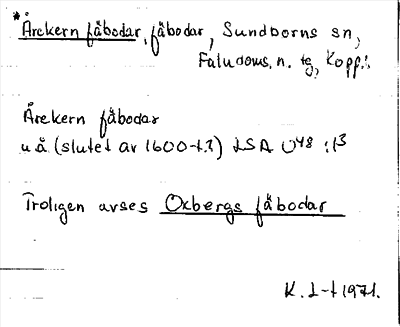 *Årckern fäbodar, fäbodar, Sundborns sn,
Faludoms. n. tg, Kopp. l.
Årckern fäbodar
u.å. (slutet av 1600-t.?) LSA U48:13
Troligen avses Oxbergs fäbodar
K. L-t 1971.